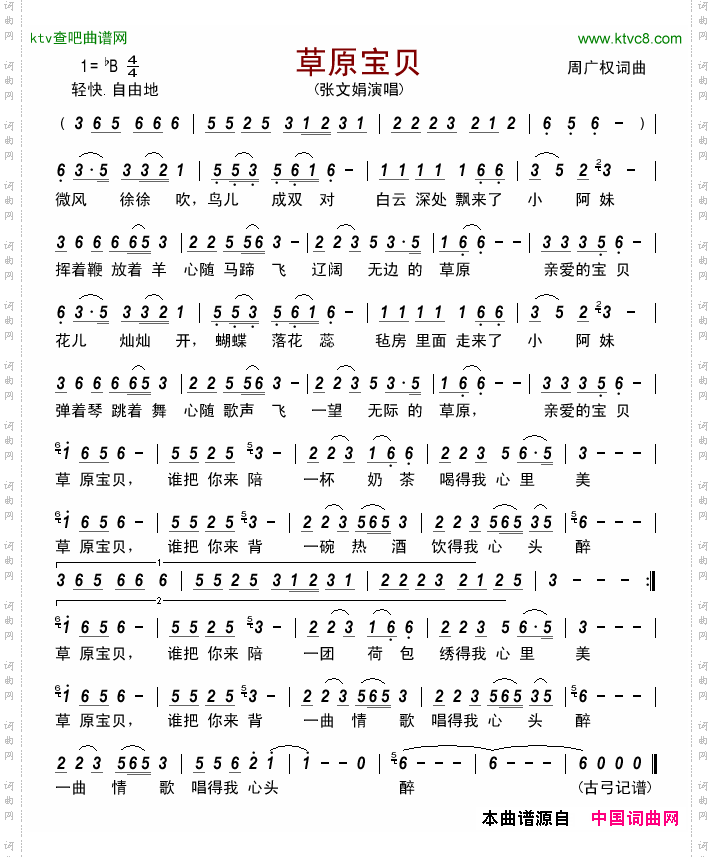 ktv查吧曲谱网 www.ktvc8.com
草原宝贝
1=♭B 4/4
周广权词曲
轻快.自由地
(张文娟演唱)
( 3 6 5 6 6 6 | 5 5 2 5 3 1 2 3 1 | 2 2 2 3 2 1 2 | 6 5 6 - ) |
6 3·5 3 3 2 1 | 5 5 3 5 6 1 6 - | 1 1 1 1 1 6 6 | 3 5 2 3 - |
微风 徐徐 吹,鸟儿 成双 对 白云 深处 飘来了 小 阿妹
3 6 6 6 6 6 5 3 | 2 2 5 5 6 3 - | 2 2 3 5 3·5 | 1 6 6 - | 3 3 3 5 6 |
挥着鞭 放着 羊 心随 马蹄 飞 辽阔 无边 的 草原 亲爱的宝 贝
6 3·5 3 3 2 1 | 5 5 3 5 6 1 6 - | 1 1 1 1 1 6 6 | 3 5 2 3 - |
花儿 灿灿 开,蝴蝶 落花 蕊 毡房 里面 走来了 小 阿妹
3 6 6 6 6 6 5 3 | 2 2 5 5 6 3 - | 2 2 3 5 3·5 | 1 6 6 - | 3 3 3 5 6 |
弹着琴 跳着 舞 心随 歌声 飞 一望 无际 的 草原, 亲爱的宝 贝
6 1 6 5 6 - | 5 5 2 5 5 3 - | 2 2 3 1 6 6 | 2 2 3 5 6·5 | 3 - - - |
草 原宝贝, 谁把 你来 陪 一杯 奶 茶 喝得我 心 里 美
6 1 6 5 6 - | 5 5 2 5 5 3 - | 2 2 3 5 6 5 3 | 2 2 3 5 6 5 3 5 | 5 6 - - |
草 原宝贝, 谁把 你来 背 一碗 热 酒 饮得我 心 头 醉
1
3 6 5 6 6 6 | 5 5 2 5 3 1 2 3 1 | 2 2 2 3 2 1 2 5 | 3 - - - :|
2
6 1 6 5 6 - | 5 5 2 5 5 3 - | 2 2 3 1 6 6 | 2 2 3 5 6·5 | 3 - - - |
草 原宝贝, 谁把 你来 陪 一团 荷 包 绣得我 心 里 美
6 1 6 5 6 - | 5 5 2 5 5 3 - | 2 2 3 5 6 5 3 | 2 2 3 5 6 5 3 5 | 5 6 - - |
草 原宝贝, 谁把 你来 背 一曲 情 歌 唱得我 心 头 醉
2 2 3 5 6 5 3 | 5 5 6 2 1 | 1 - - 0 | 5 6 - - - | 6 - - - | 6 0 0 0 |
一曲 情 歌 唱得我 心头 醉 (古弓记谱)
本曲谱源自 中国词曲网